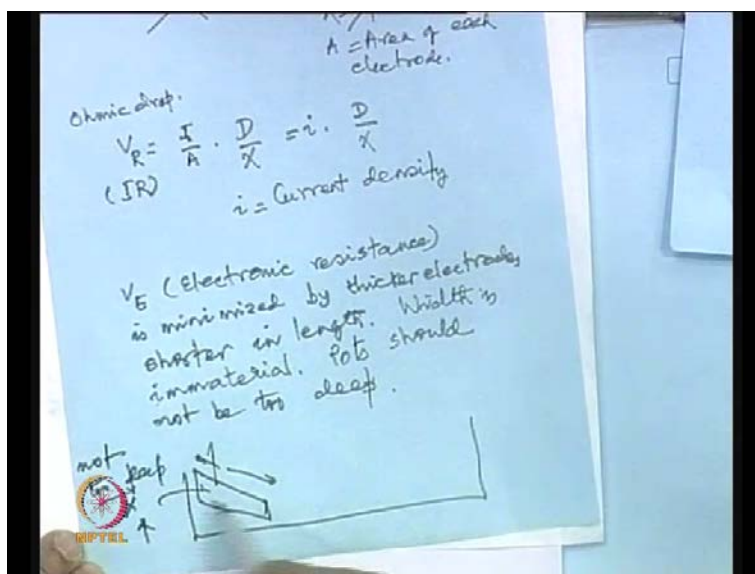 A = Area of each
electrode.
Ohmic drop.
V_R = I/A · D/X = i · D/X
(IR)
i = Current density
V_E (Electronic resistance)
is minimized by thicker electrodes
shorter in length. Width is
immaterial. Pots should
not be too deep.
not
too deep
NPTEL